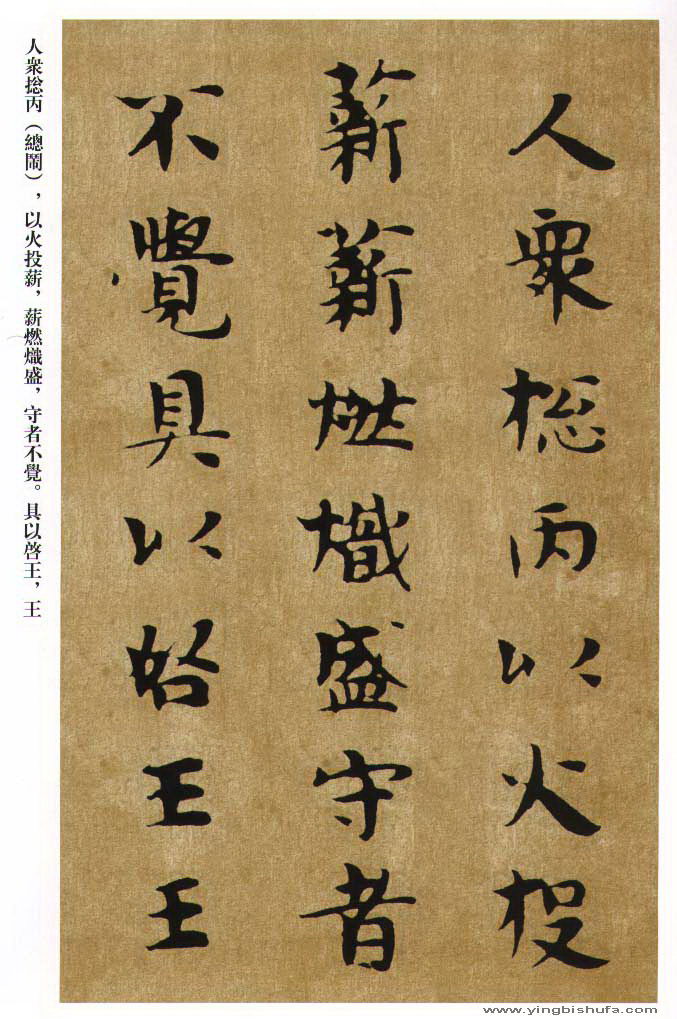 人衆捴丙以火投
薪薪燃熾盛守者
不覺具以啓王王
人衆捴丙（總鬧），以火投薪，薪燃熾盛，守者不覺。具以啓王，王
www.yingbishufa.com